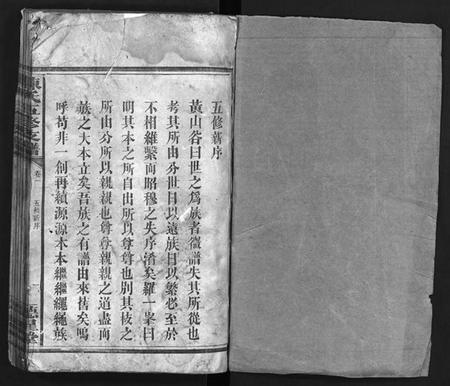 五修新序
黃山谷曰世之為族者徵譜失其所從也
考其所由分世日以遠族日以繁必至於
不相維繫而昭穆之失序淆矣羅一峯曰
明其本之所自出所以尊尊也別其枝之
所由分所以親親也尊尊親親之道盡而
族之大本立矣吾族之有譜由來舊矣嗚
呼苟非一創再續源源本本繼繼繩繩族
氏五修支譜
卷一
五修新序